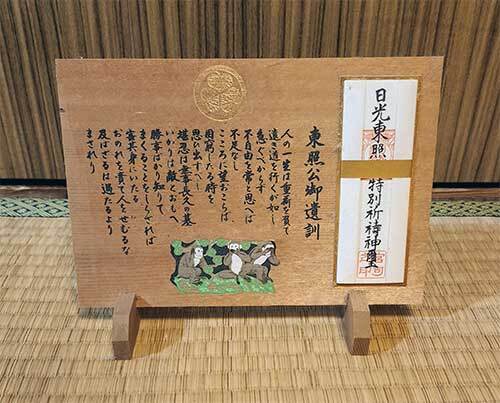 日光東照
特別祈祷神璽
東照公御遺訓
人の一生は重荷を負て
遠き道を行くが如し
急ぐべからず
不自由を常と思へば
不足なし
こころに望おこらば
困窮したる時を
思ひ出すべし
堪忍は無事長久の基
いかりは敵とおもへ
勝事ばかり知りて
まくることをしらざれば
害其身にいたる
おのれを責て人をせむるな
及ばざるは過たるより
まされり